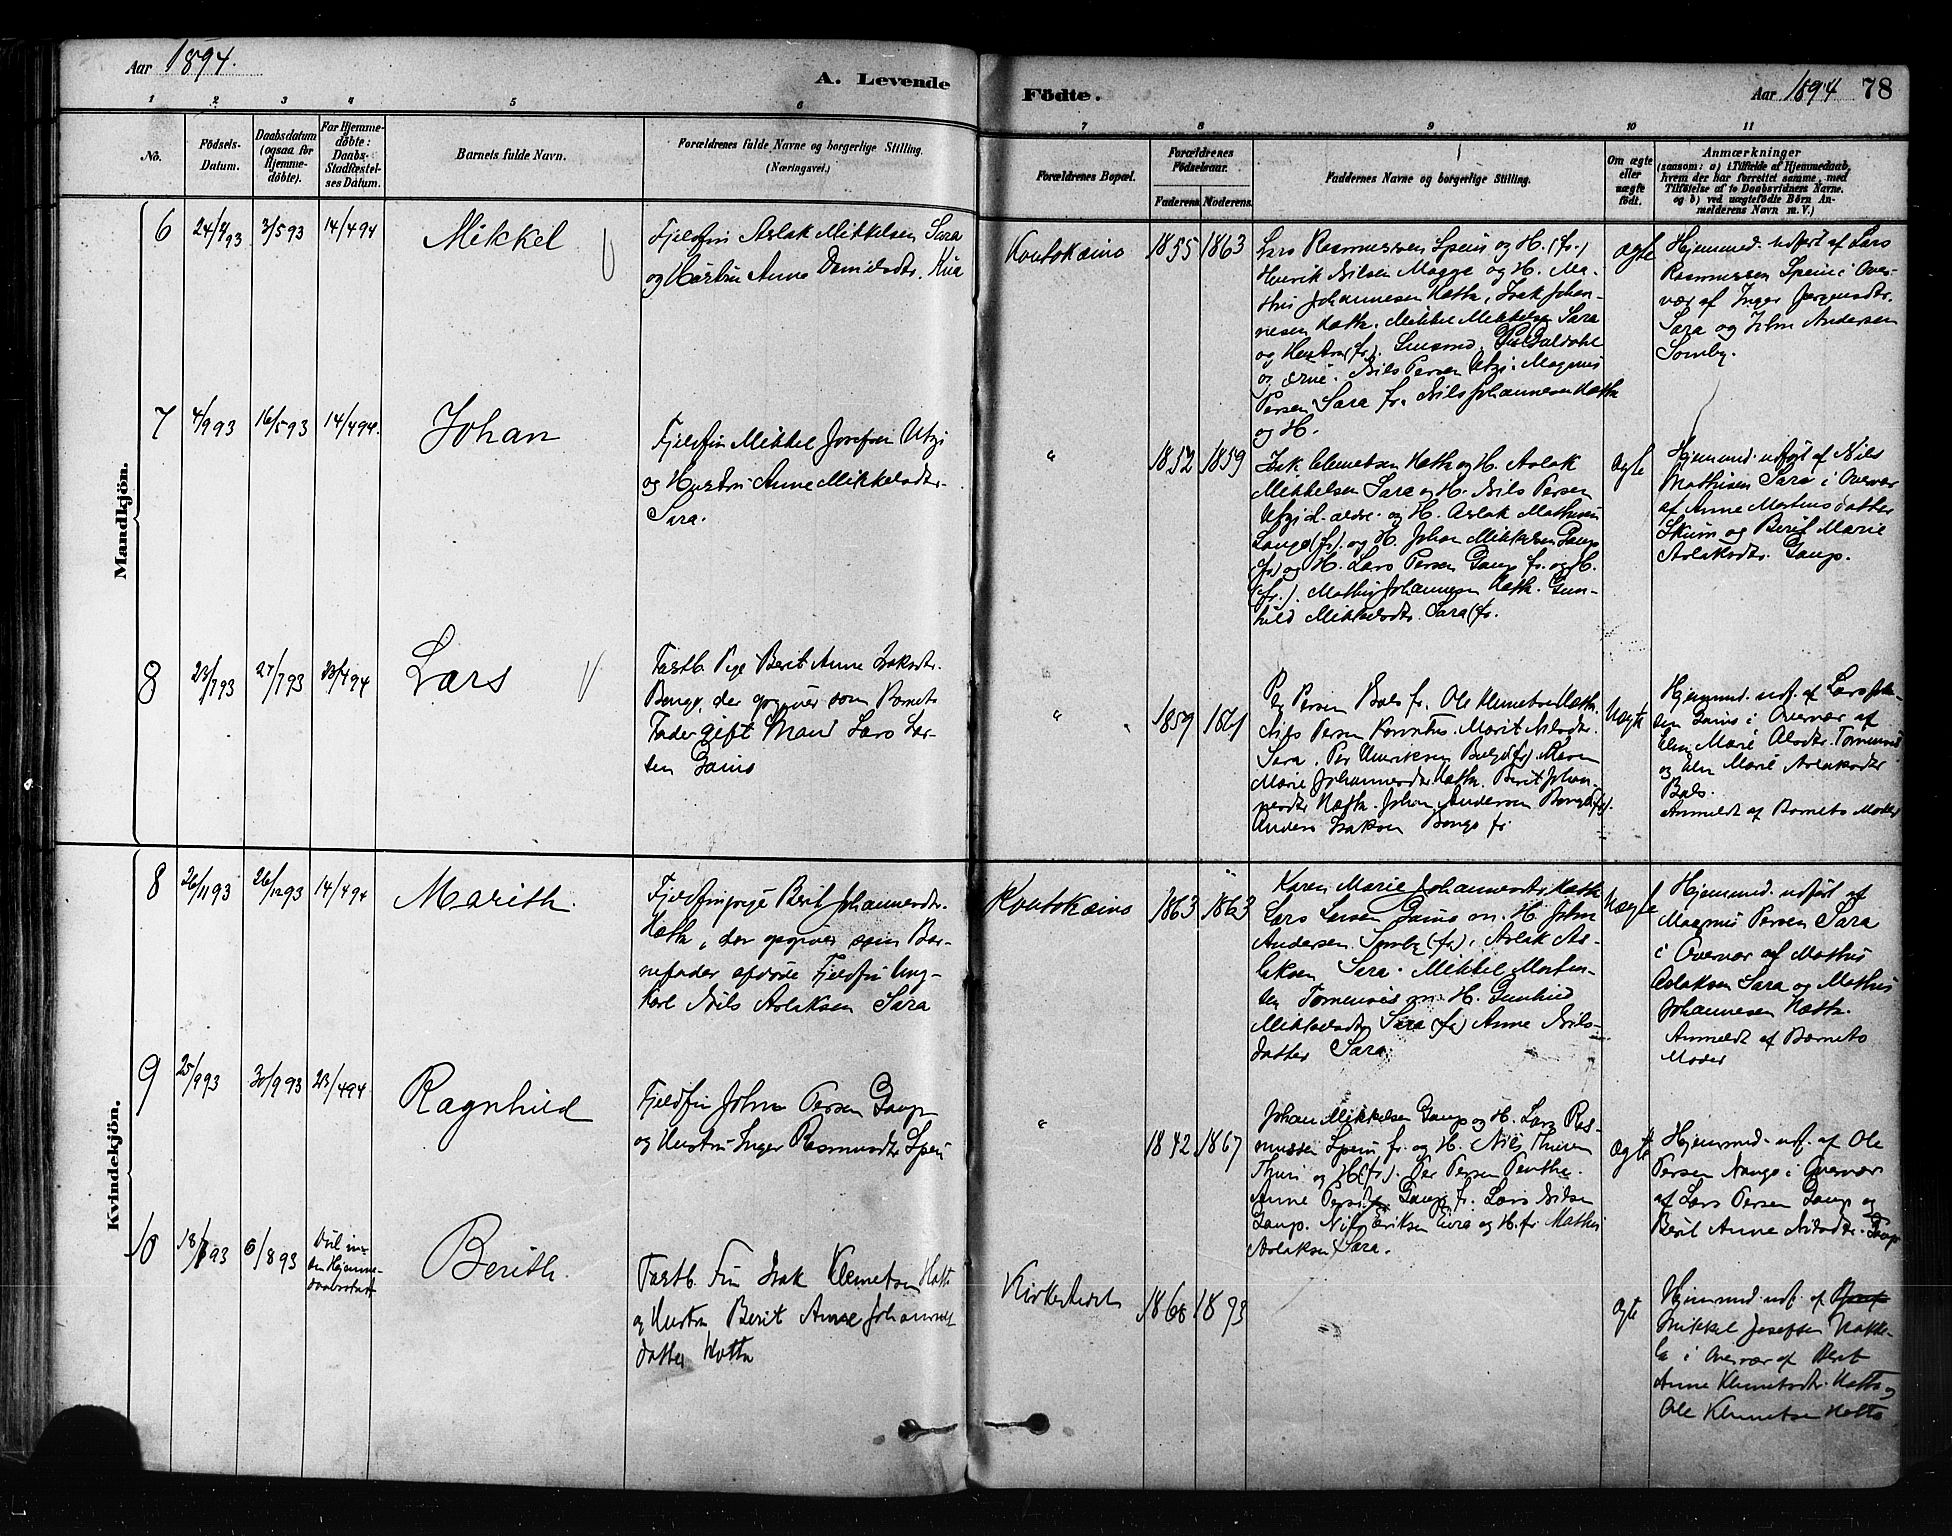 Aar 1894.
A. Levende
Födte.
Aar 1894 78
1 2 3 4 5 6 7 8 9 10 11
No.
Födsels-
Datum.
Daabsdatum
(ogsaa for
Hjemme-
døbte).
For Hjemme-
døbte:
Daabs-
Stadfæstel-
ses Datum.
Barnets fulde Navn.
Forældrenes fulde Navne og borgerlige Stilling.
(Næringsvei.)
Forældrenes Bopæl.
Forældrenes
Födselsaar.
Faderens. Moderens.
Faddernes Navne og borgerlige Stilling.
Om ægte
eller
uægte
født.
Anmærkninger
(saasom: a) i Tilfælde af Hjemmedaab,
hvem der har forrettet samme, med
Tilføielse af to Daabsvidners Navne.
og b) ved uægtefödte Börn An-
melderens Navn m. V.)
Mandkjön.
6 24/4 93 3/5 93 14/4 94 Mikkel
Fjeldfin Aslak Mikkelsen Sara
og Hustru Anne Danielsdtr.
Kautokeino 1855 1863
Lars Rasmussen Spein og H. (fr.)
Henrik Nilsen Magge og H. Ma-
this Johannesen Hætta, Isak Johan-
nesen Hætta. Mikkel Mikkelsen Sara
og Hustru (fr.).
Nils Persen Utzi. Magnus
Persen Sara fr. Nils Johannesen Hætta
og H.
ægte
Hjemmed. udført af Lars
Rasmussen Spein i Over-
vær af Inger Jørgensdtr.
Sara og John Andersen
Somby.
7 4/9 93 16/5 93 14/4 94. Johan
Fjeldfin Mikkel Josefsen Utzi
og Hustru Anne Mikkelsdtr.
Sara.
" 1852 1859
Isak Clemetsen Hætta og H. Aslak
Mikkelsen Sara og H. Nils Persen
Utzi d. ældre. og H. Aslak Mathisen
(fr). og H. Johan Mikkelsen Gaup
(fr) og H. Lars Persen Gaup fr. og H.
(fr.). Mathis Johannesen Hætta. Gun-
hild Mikkelsdtr. Sara (fr.
ægte
Hjemmed. udført af Nils
Mathisen Sara i Overvær
af Anne Mortensdatter
Skum og Berit Marie
Aslaksdtr. Gaup.
8 23/7 93 27/7 93 23/4 94 Lars
Fastb. Pige Berit Anne Isaksdtr.
Bongo, der opgiver som Barnets
Fader gift Mand Lars Lar-
sen Gaino
" 1859
Per Persen Bals fr. Ole Klemetsen Hætta.
Nils Persen Marit Nilsdtr.
Sara. Per Henriksen (fr). Karen
Marie Johannesdtr Hætta. Berit Johan-
nesdtr Hætta. Johan Andersen Bongo (fr).
Anders Isaksen Bongo fr.
Uægte
Hjemmed. udf. af Lars
sen Gaino i Overvær af
Elen Marie Olsdtr. Tornensis
og Elen Marie Aslaksdtr
Bals.
Anmeldt af Barnets Moder
Kvindekjön.
8 26/11 93 26/12 93 14/4 94 Marith.
Fjeldfinpige Berit Johannesdtr.
Hætta, der opgiver som Bar-
nefader afdøde Fjeldfin Ung-
karl Nils Aslaksen Sara
Kautokeino 1863 1863
Karen Marie Johannesdtr Hætta
Lars Larsen Gaino m. H. John
Andersen Somby (fr), Aslak As-
laksen Sara. Mikkel Morten-
sen Tornensis m. H. Gunhild
Mikkelsdtr Sara (fr) Anne Nils-
datter Sara.
Uægte
Hjemmed. udført af
Magnus Persen Sara
i Overvær af Mathis
Aslaksen Sara og Mathis
Johannesen Hætta.
Anmeldt af Barnets
Moder
9 25/9 93 30/9 93 23/4 94 Ragnhild
Fjeldfin John Persen Gaup
og Hustru Inger Rasmusdtr Spein
" 1842 1867
Johan Mikkelsen Gaup og H. Lars Ras-
mussen Spein fr. og H. Nils Thuren
Thuri og H (fr). Per Persen Penthe.
Anne Persdtr Gaup fr. Lars Nilsen
Gaup. Nils Eriksen Eira og H. fr. Mathis
Aslaksen Sara.
ægte
Hjemmed. udf. af Ole
Persen Nango i Overvær
af Lars Persen Gaup og
Berit Anne Nilsdtr. Gaup
10 18/7 93 6/8 93
Berith.
Fastb. Fin Isak Klemetsen Hætta
og Hustru Berit Anne Johannes-
datter Hætta
Kirkestedet 1868 1873
ægte
Hjemmed. udf. af
Mikkel Josefsen Nakke-
la i Overvær af Berit
Anne Klemetsdtr. Hætta og
Ole Klemetsen Hætta